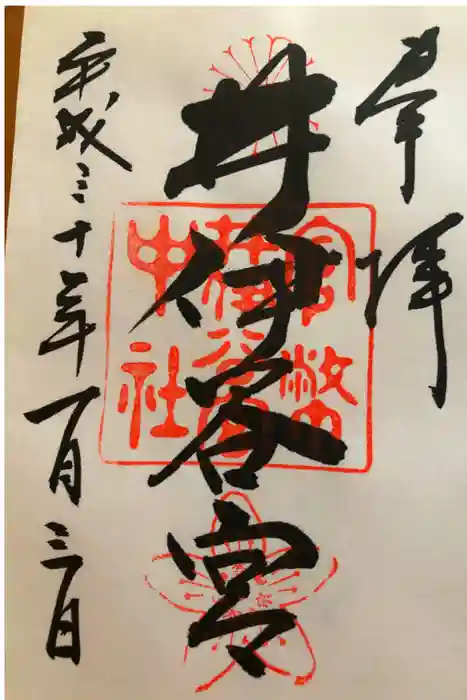 奉拝
井伊谷宮
官幣
井伊谷宮
中社
平成三十年一月三日